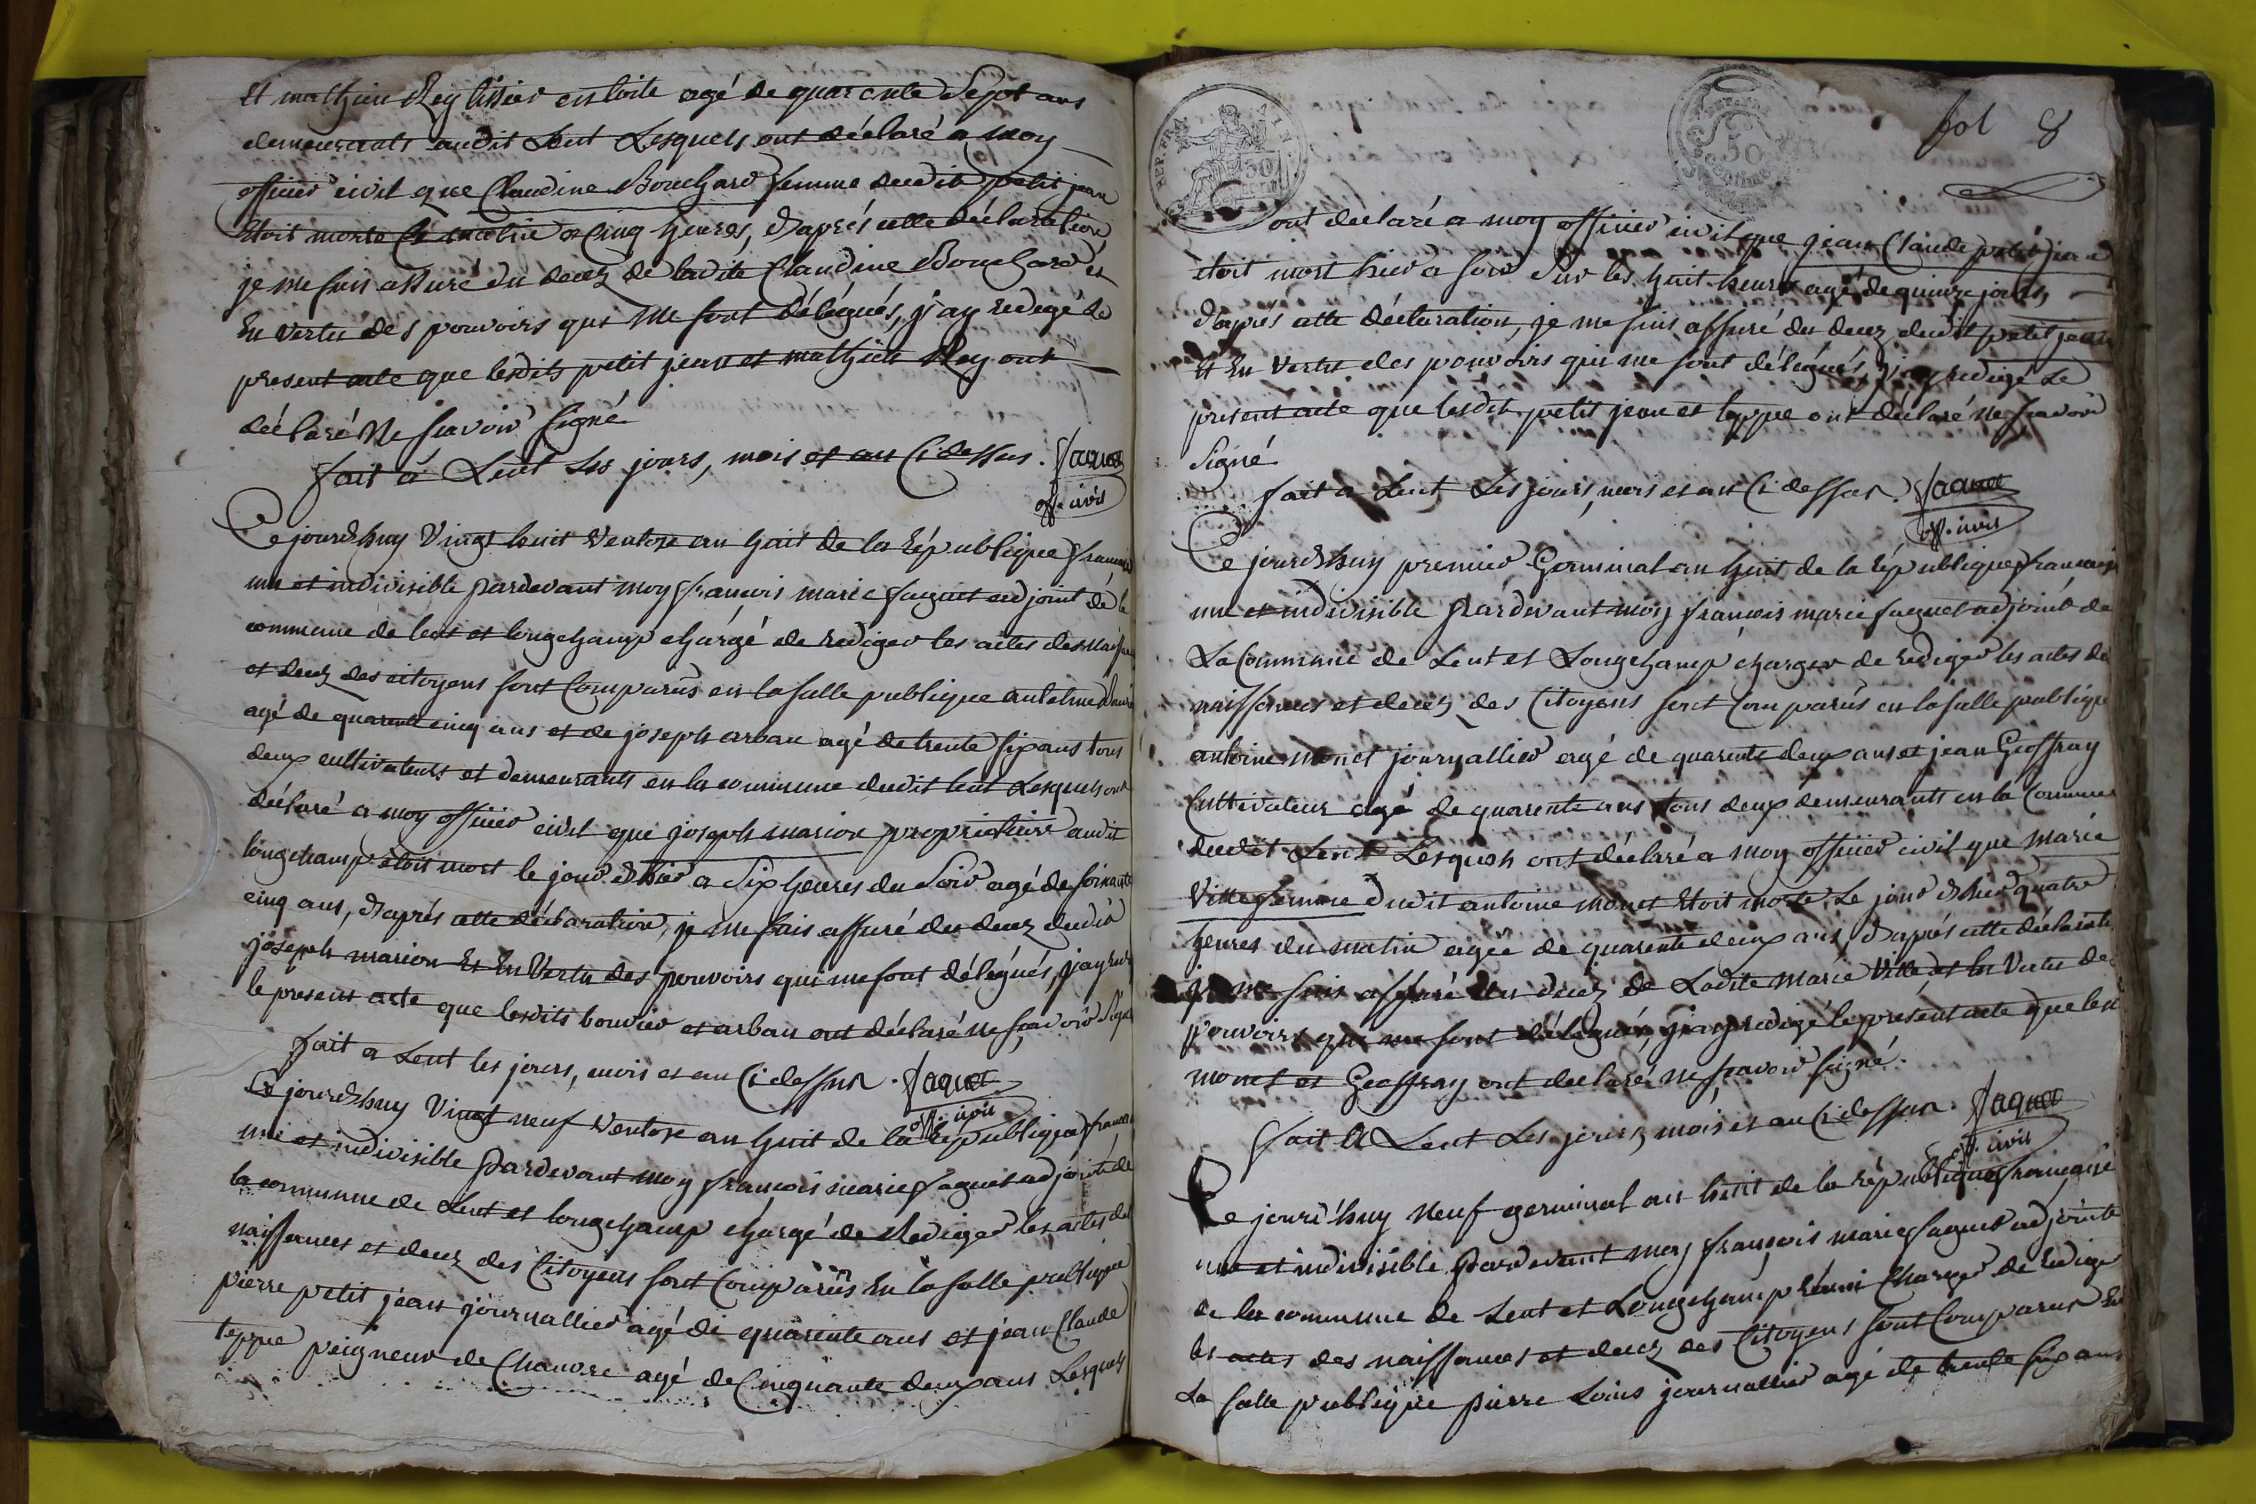 Et mathieu Rey tissier en toile agé de quarente Sept ans
demeurants audit Lent Lesquels ont déclaré a moy
officier civil que Claudine Bouchard femme dudit petit jean
Etoit morte ce matin a Cinq heures, d'aprés cette déclaration
je me suis assuré du decez de ladite Claudine Bouchard et
En vertu des pouvoirs qui me sont délégués, j'ay redigé le
present acte que lesdits petit jean et mathieu Rey ont
déclaré Ne scavoir signé
fait à Lent Les jours, mois et an Ci dessus. Jaquet
off. civil
Ce jourd'huy Vingt huit Ventose an huit de la République francaise
une et indivisible pardevant moy francois marie Jaquet adjoint de la
commune de lent et longchamp chargé de rediger les actes des naissances
et decez des citoyens sont Comparûs en la salle publique antelme
agé de quarente cinq ans et de joseph arban agé de trente six ans tous
deux cultivateurs et demeurants en la commune dudit lent Lesquels ont
déclaré a moy officier civil que joseph marion propriétaire audit
longchamp étoit mort le jour d'hier a Six heures du Soir agé de soixante
cinq ans, d'aprés cette déclaration, je me suis assuré du decez dudit
joseph marion Et En Vertu des pouvoirs qui me sont délégués, j'ay
le present acte que lesdits bouvier et arban ont déclaré ne scavoir Signé
fait a Lent les jours, mois et an Ci dessus. Jaquet
off. civil
Ce jourd'huy Vingt neuf Ventose an huit de la République francaise
une et indivisible Pardevant moy francois marie Jaquet adjoint de
la commune de Lent et longchamp chargé de Rediger les actes des
naissances et decez des Citoyens sont Comparûs En la salle publique
pierre petit jean journallier agé de quarente ans et jean Claude
teppe peigneur de Chanvre agé de Cinquante deux ans Lesquels
fol 8
REP. FRA
50
50
Centimes
ont declaré a moy officier civil que jean Claude petit jean
étoit mort hier a soir Sur les huit heures agé de quinze jours,
d'aprés cette déclaration, je me suis assuré du decez dudit petit jean
Et En Vertu des pouvoirs qui me sont délégués, j'ay redigé Le
present acte que lesdit petit jean et teppe ont déclaré ne scavoir
Signé
fait a Lent Les jours, mois et an Ci dessus. Jaquet
off. civil
Ce jourd'huy premier Germinal an huit de la République francaise
une et indivisible Pardevant moy francois marie Jaquet adjoint de
La Commune de Lent et Longchamp charger de rediger les actes de
naissances et decez des Citoyens sont Comparûs en la salle publique
antoine monet journallier agé de quarente deux ans et jean Geoffray
Cultivateur agé de quarente ans tous deux demeurants en la Commune
dudit Lent Lesquels ont déclaré a moy officier civil que marie
Ville femme dudit antoine monet Etoit morte Le jour d'hier quatre
heures du matin agée de quarente deux ans, d'aprés cette déclaration
je me suis assuré du decez de Ladite marie Ville, et En Vertu des
pouvoirs qui me sont délégués, j'ay redigé le present acte que lesd
monet et Geoffray ont declaré ne scavoir signé.
fait A Lent Les jours, mois et an Ci dessus. Jaquet
off. civil
Ce jourd'huy Neuf germinal an huit de la République francaise
une et indivisible Pardevant moy françois marie Jaquet adjoint
de la commune de Lent et Longchamp réuni Charger de rediger
les actes des naissances et decez des Citoyens sont Comparus En
La salle publique pierre Loius journallier agé de trente six ans